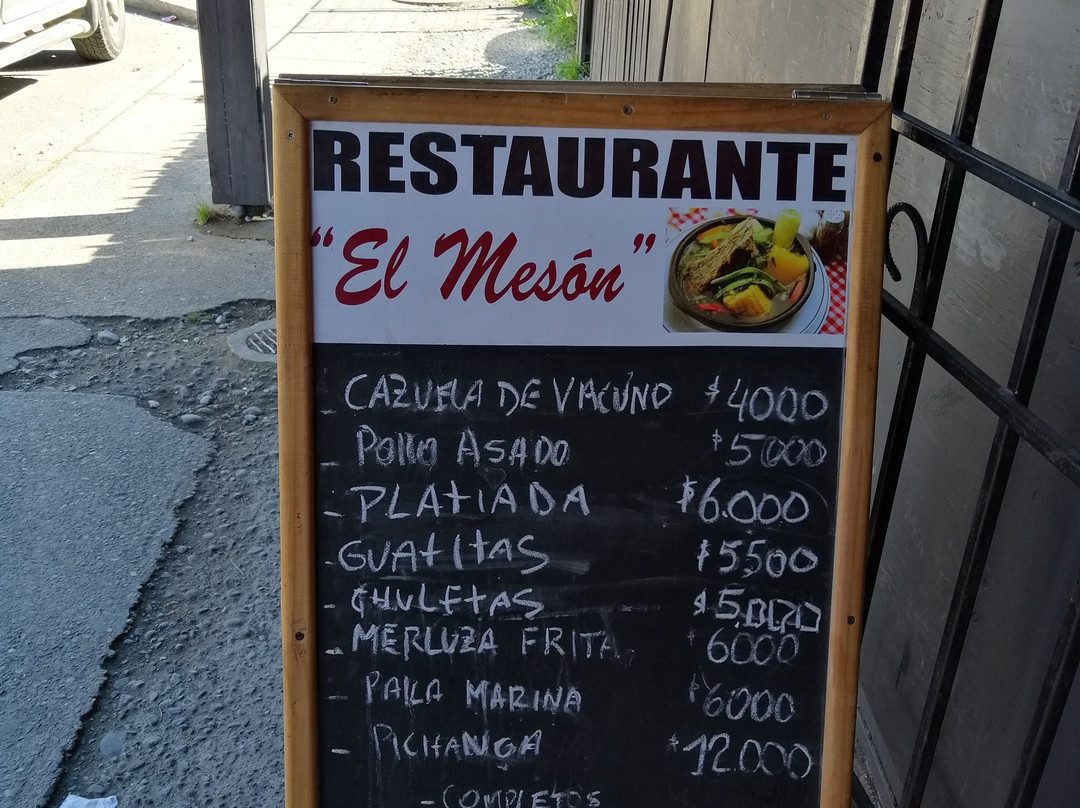 RESTAURANTE
"El Mesón"
- CAZUELA DE VACUNO $4000
- POLLO ASADO $5000
- PLATIADA $6.000
- GUATITAS $5500
- CHULETAS $5.000
- MERLUZA FRITA 6000
- PAILA MARINA $6000
- PICHANGA $12.000
- COMPLETOS